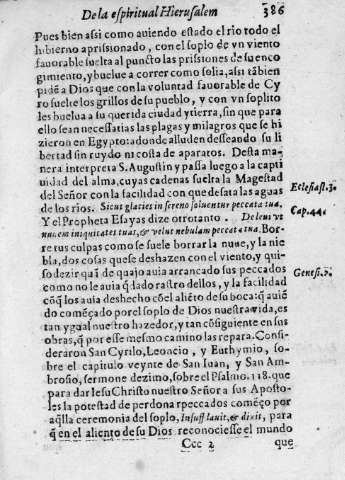 De la espiritual Hierusalem
386
Pues bien assi como auiendo estado el rio todo el
hibierno aprissionado, con el soplo de vn viento
fauorable suelta al puncto las prissiones de su enco
gimiento, y buelue a correr como solia, assi tãbien
pidẽ a Dios que con la voluntad fauorable de Cy
ro suelte los grillos de su pueblo, y con vn soplito
les buelua a su querida ciudad y tierra, sin que para
ello sean necessatias las plagas y milagros que se hi
zieron en Egypto adonde alluden desseando su li
bertad sin ruydo ni costa de aparatos. Desta ma
nera interpreta S. Augustin y passa luego a la capti
uidad del alma, cuyas cadenas suelta la Magestad
del Señor con la facilidad con que desata las aguas
de los rios. Sicut glacies in sereno soluentur peccata tua.
Y el Propheta Esayas dize otrotanto. Deleui vt
nubem iniquitates tuas, & velut nebulam peccata tua. Bor-
re tus culpas como se suele borrar la nuue, y la nie
bla, dos cosas que se deshazen con el viento, y qui-
so dezir quã de quajo auia arrancado sus peccados
como no le auia q̃dado rastro dellos, y la facilidad
cõq̃ los auia deshecho cõ el aliẽto de su boca: q̃ auiẽ
do comẽçado por el soplo de Dios nuestra vida, es
tan ygual nuestro hazedor, y tan cõsiguiente en sus
obras, q̃ por esse mesmo camino las repara. Consi-
deraron San Cyrilo, Leoncio, y Euthymio, so-
bre el capitulo veynte de San Iuan, y San Am-
brosio, sermone dezimo, sobre el Psalmo. 118. que
para dar Iesu Christo nuestro Señor a sus Aposto-
les la potestad de perdonar peccados comẽço por
aq̃lla ceremonia del soplo, Insufflauit, & dixit, para
q̃ en el aliento de su Dios reconociesse el mundo
Ccc 2
que
Eclesiast. 3.
Cap. 44.
Genesi. 2.